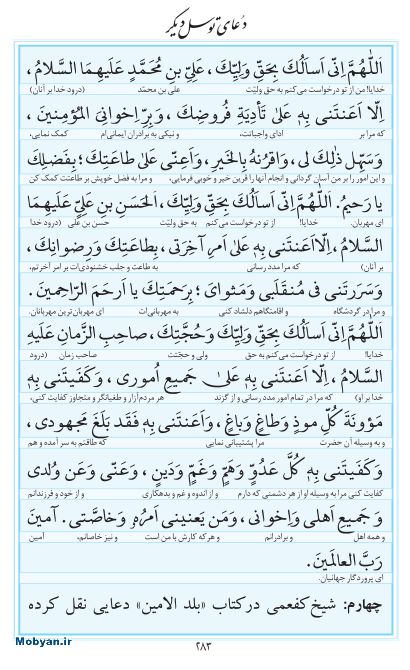 دعای توسل دیگر
اَللّٰهُمَّ اِنّی اَسأَلُكَ بِحَقِّ وَلِيِّكَ ، عَلِيِّ بنِ مُحَمَّدٍ عَلَيهِمَا السَّلامُ ،
خدایا! من از تو درخواست می‌کنم به حق ولیّت علی بن محمّد (درود خدا بر آنان)
اِلّا اَعَنتَنی بِهِ عَلیٰ تَأدِيَةِ فُروضِكَ ، وَبِرِّ اِخوانِیَ المُؤمِنينَ ،
که مرا بر ادای واجباتت، و نیکی به برادران ایمانی‌ام کمک نمایی،
وَسَهِّل ذٰلِكَ لی ، وَاقرُنهُ بِالخَيرِ ، وَاَعِنّی عَلیٰ طاعَتِكَ ؛ بِفَضلِكَ
و این امور را بر من آسان گردانی و انجام آنها را قرین خیر و خوبی فرمایی، و مرا به فضل خویش بر طاعتت کمک کن
يا رَحيمُ. اَللّٰهُمَّ اِنّی اَسأَلُكَ بِحَقِّ وَلِيِّكَ ، اَلحَسَنِ بنِ عَلِيٍّ عَلَيهِمَا
ای مهربان. خدایا! از تو درخواست می‌کنم به حق ولیّت حسن بن علی (درود خدا
السَّلامُ ، اِلّااَعَنتَنی بِهِ عَلیٰ اَمرِ آخِرَتی ، بِطاعَتِكَ وَرِضوانِكَ ،
بر آنان) که مرا مدد رسانی به طاعت و جلب خشنودی‌ات بر امر آخرتم،
وَسَرَرتَنی فی مُنقَلَبی وَمَثوایَ ؛ بِرَحمَتِكَ يا اَرحَمَ الرّاحِمينَ .
و مرا در گردشگاه و اقامتگاهم دلشاد کنی به مهربانی‌ات ای مهربان‌ترین مهربانان.
اَللّٰهُمَّ اِنّی اَسأَلُكَ بِحَقِّ وَلِيِّكَ وَحُجَّتِكَ ، صاحِبِ الزَّمانِ عَلَيهِ
خدایا! از تو درخواست می‌کنم به حق ولی و حجّتت صاحب زمان (درود
السَّلامُ ، اِلّا اَعَنتَنی بِهِ عَلیٰ جَميعِ اُموری ، وَكَفَيتَنی بِهِ
خدا بر او) که مرا در تمام امور مدد رسانی و از گزند هر مردم‌آزار و طغیانگر و متجاوز کفایت کنی،
مَؤونَةَ كُلِّ موذٍ وَطاغٍ وَباغٍ ، وَاَعَنتَنی بِهِ فَقَد بَلَغَ مَجهودی ،
و به وسیله آن حضرت مرا پشتیبانی نمایی که طاقتم به سر آمده و هم
وَكَفَيتَنی بِهِ كُلَّ عَدُوٍّ وَهَمٍّ وَغَمٍّ وَدَينٍ ، وَعَنّی وَعَن وُلدی
کفایت کنی مرا به وسیله او از هر دشمنی که دارم و از اندوه و غم و بدهکاری و از خود و فرزندانم
وَجَميعِ اَهلی وَاِخوانی ، وَمَن يَعنينی اَمرُهُ وَخاصَّتی . آمينَ
و همه اهل و برادرانم و هر که کارش با من است و نیز خاصانم، آمین
رَبَّ العالَمينَ.
ای پروردگار جهانیان.
چهارم: شیخ کفعمی در کتاب «بلد الامین» دعایی نقل کرده
Mobyan.ir
۲۸۳